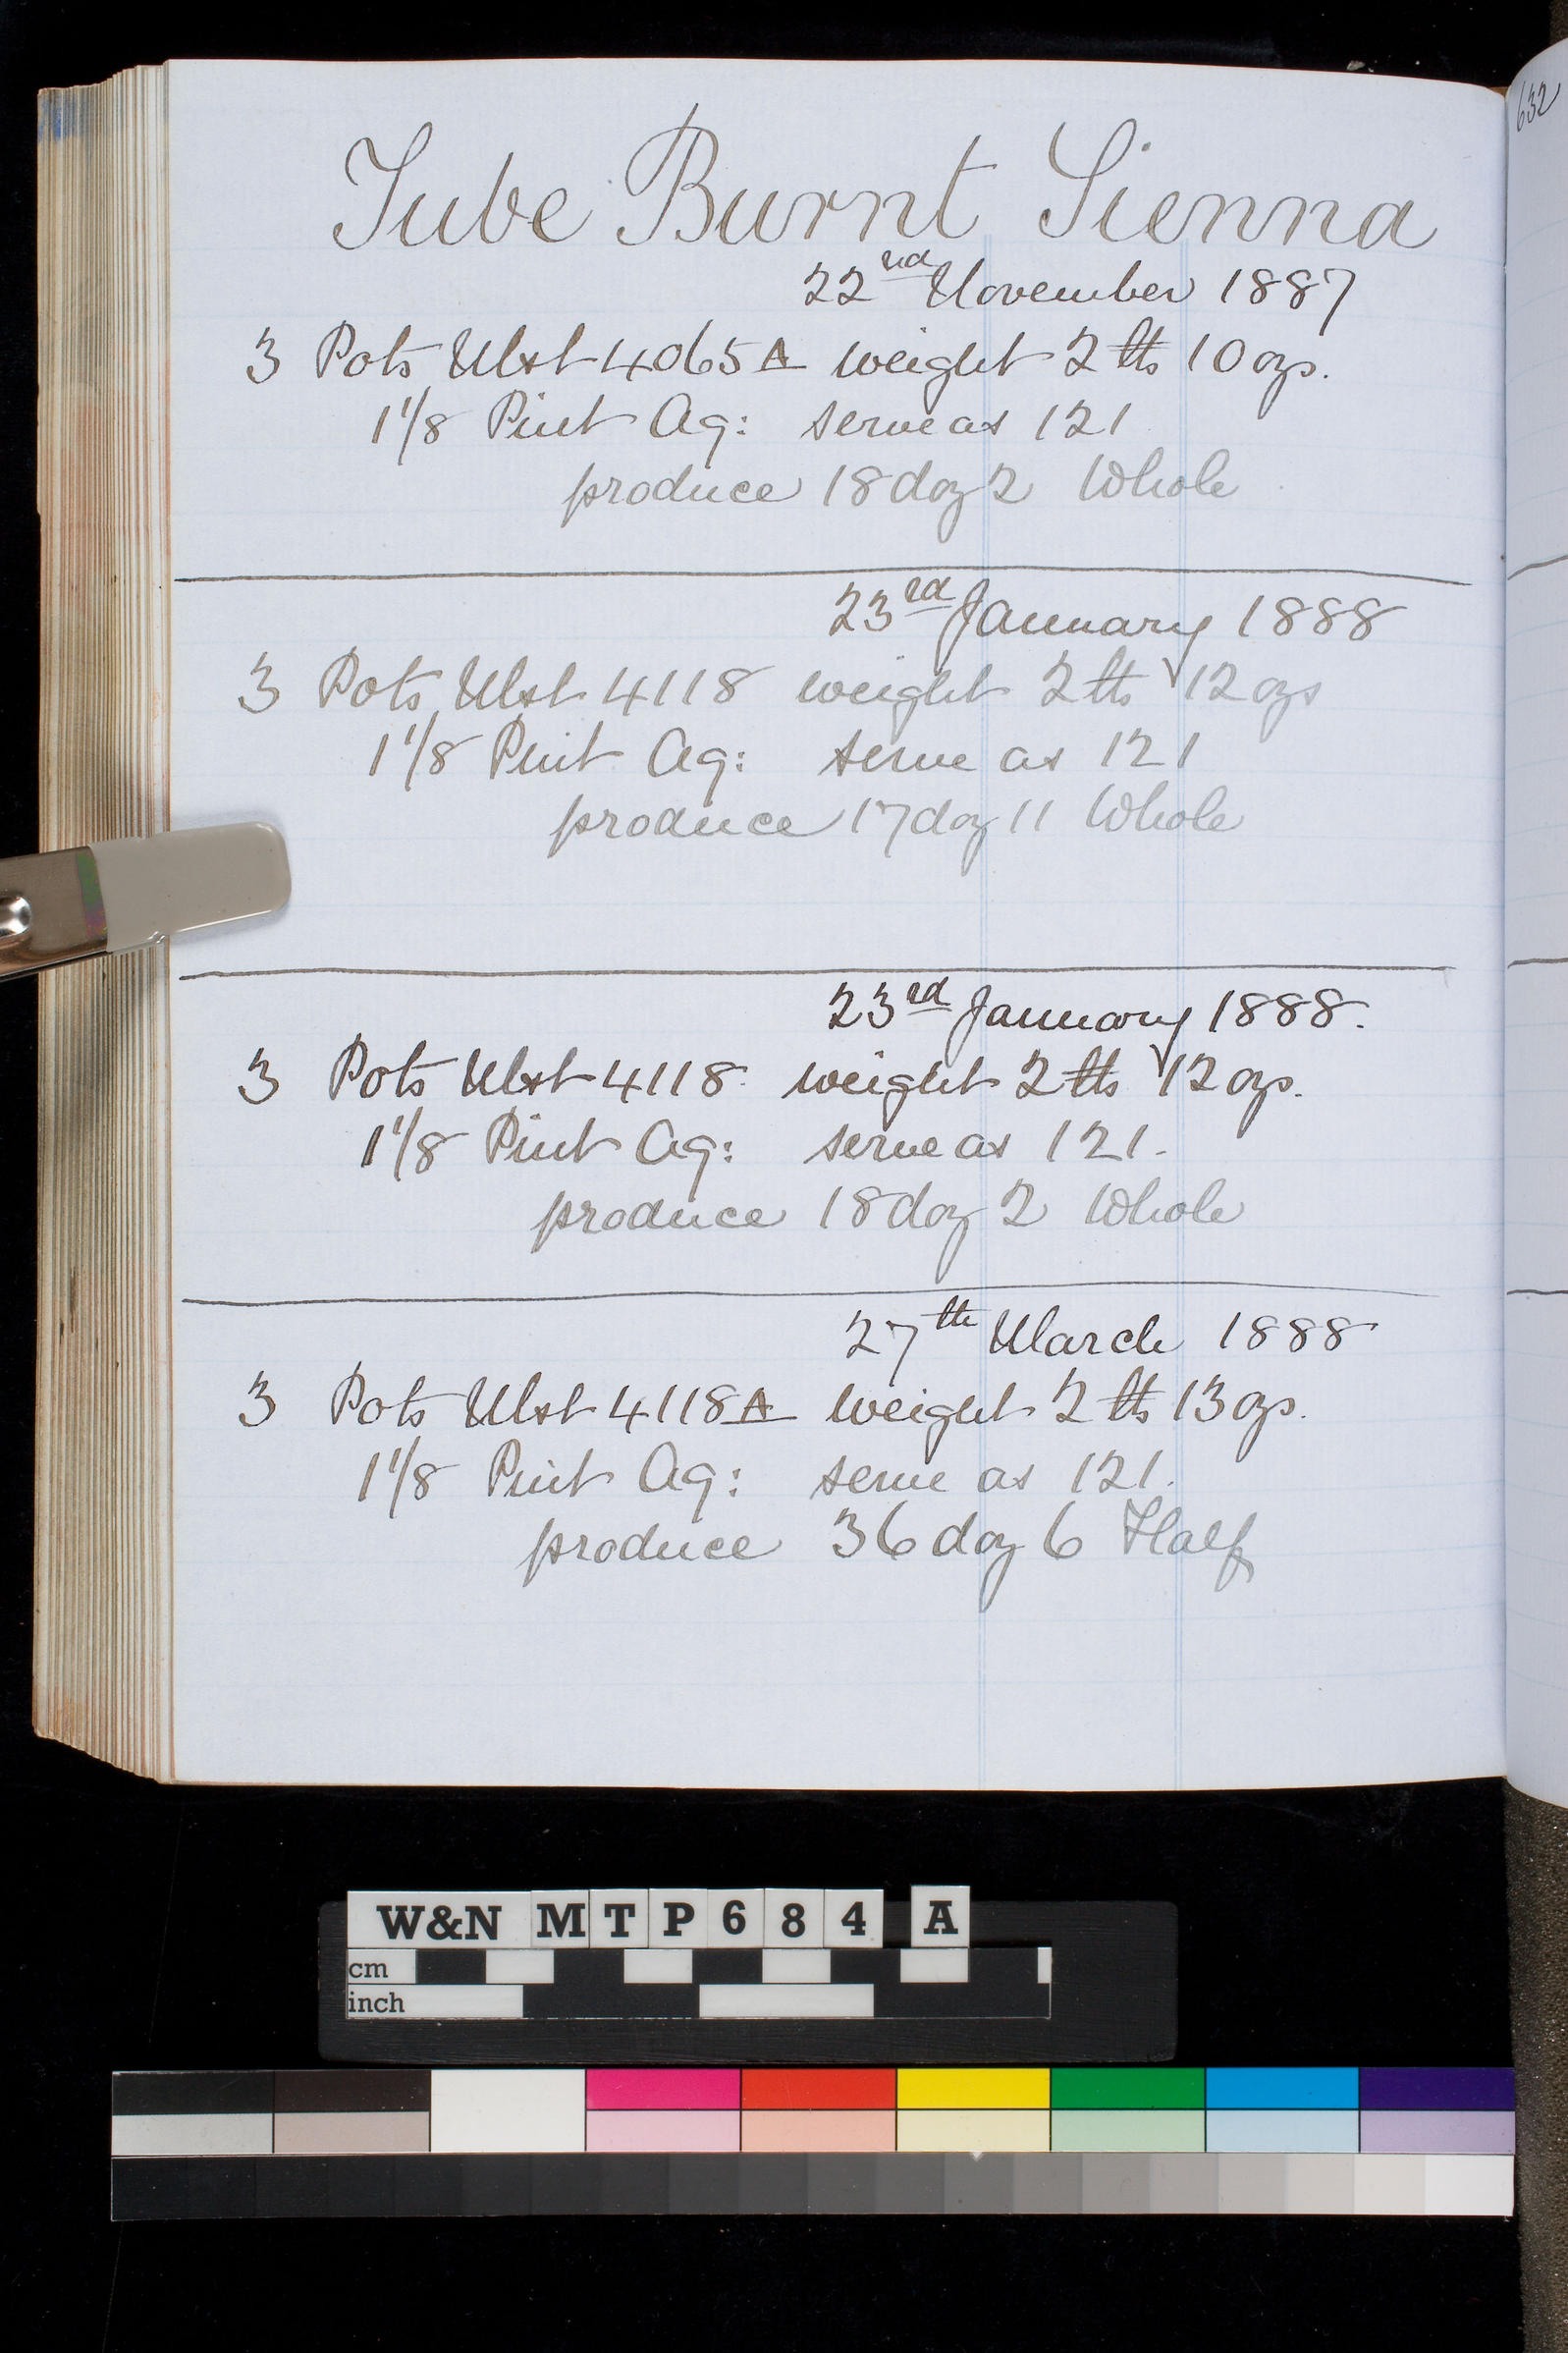 632
Tube Burnt Sienna
22nd November 1887
3 Pots Ulst 4065A weight 2 lbs 10 ozs.
1 1/8 Pint Ag: serve as 121
produce 18 doz 2 Whole
23rd January 1888
3 Pots Ulst 4118 weight 2 lbs 12 ozs
1 1/8 Pint Ag: serve as 121
produce 17 doz 11 Whole
23rd January 1888.
3 Pots Ulst 4118 weight 2 lbs 12 ozs.
1 1/8 Pint Ag: serve as 121.
produce 18 doz 2 Whole
27th March 1888
3 Pots Ulst 4118A weight 2 lbs 13 ozs.
1 1/8 Pint Ag: serve as 121.
produce 36 doz 6 Half
W&N MTP684 A
cm
inch